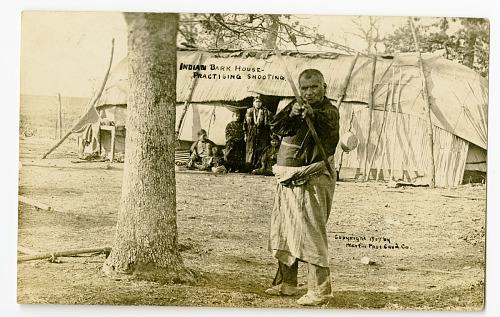 INDIAN BARK HOUSE-
PRACTISING SHOOTING.
Copyright 1909 by
Martin Post Card Co.